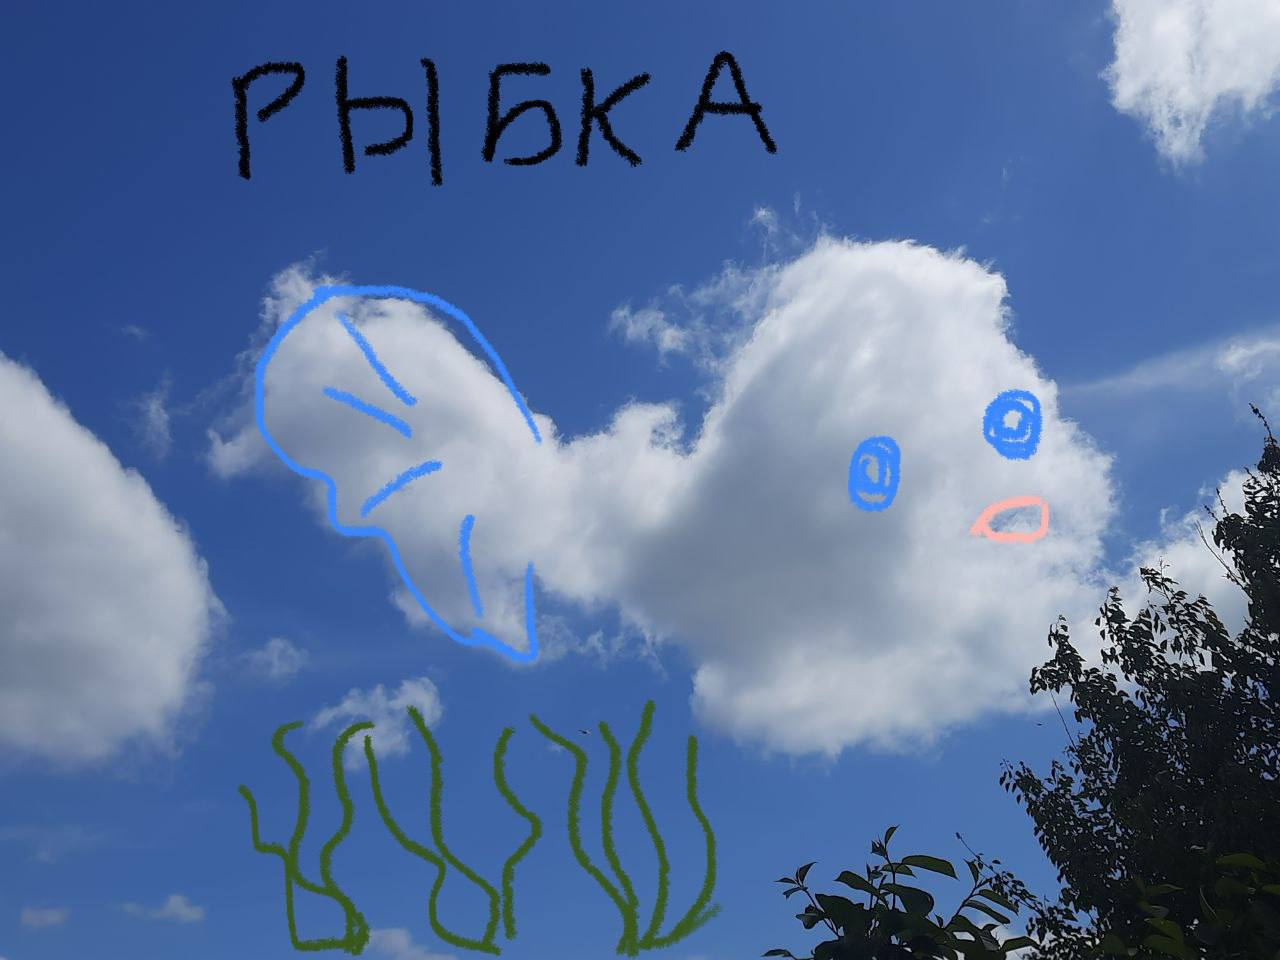 РЫБКА